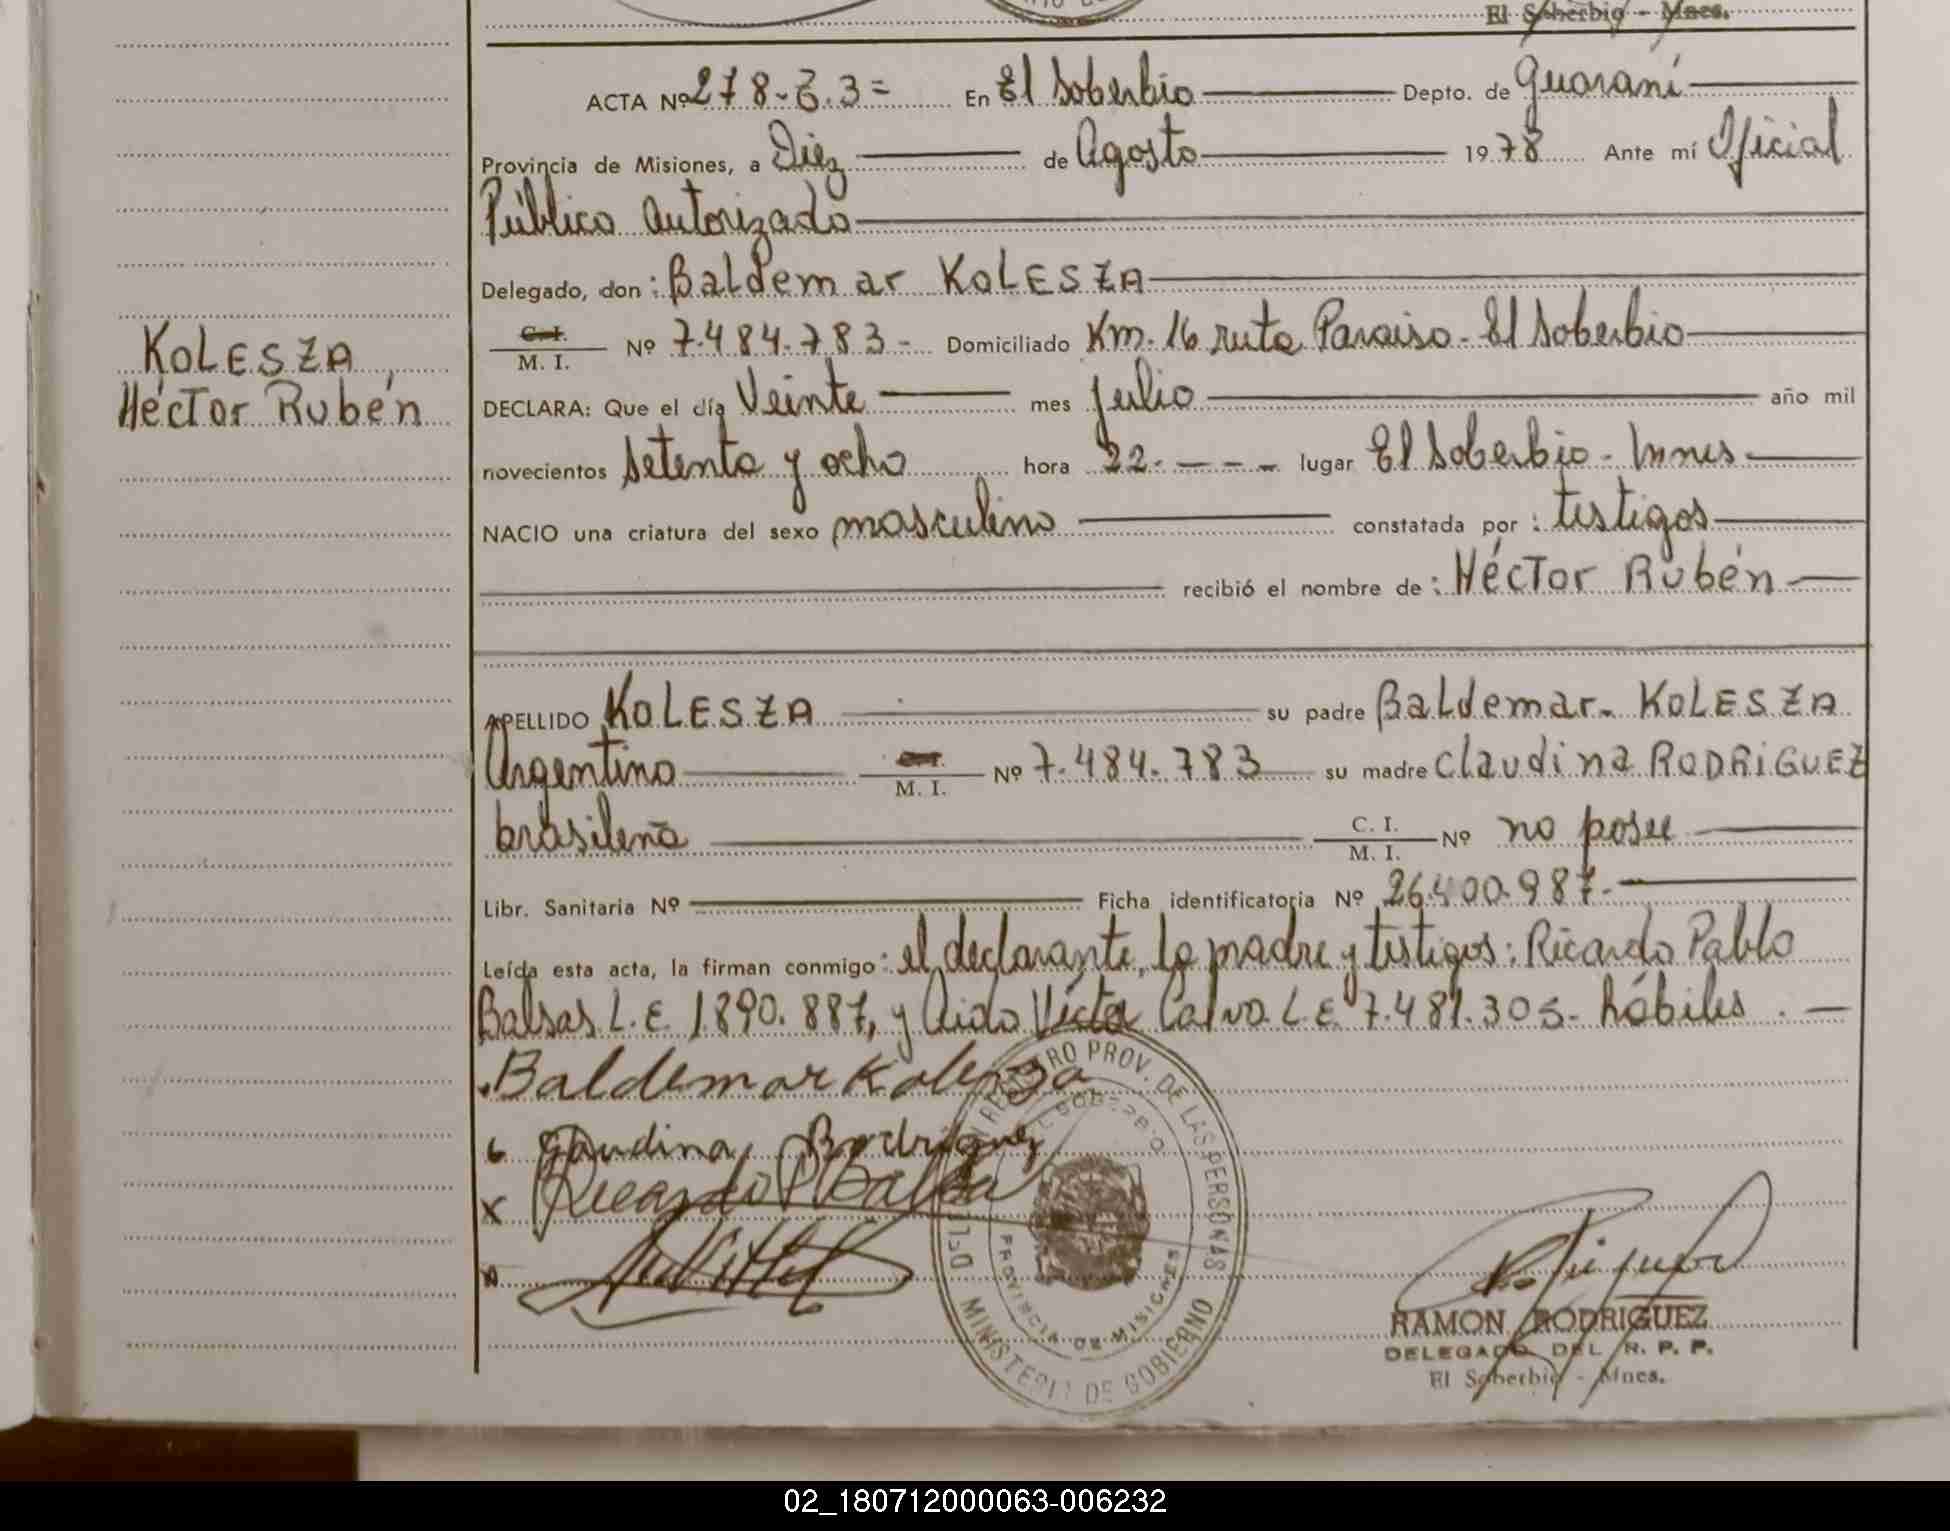 El Soberbio - Mnes.
ACTA Nº 278-Z.3= En El Soberbio Depto. de Guaraní
Provincia de Misiones, a Diez de Agosto 1978 Ante mí Oficial
Público autorizado
Delegado, don: Baldemar KOLESZA
C. I. M. I. Nº 7.484.783- Domiciliado Km. 16 ruta Paraiso - El Soberbio
KOLESZA,
Héctor Rubén
DECLARA: Que el día Veinte mes julio año mil
novecientos setenta y ocho hora 22.- - - - lugar El Soberbio - Mnes
NACIO una criatura del sexo masculino constatada por: testigos
recibió el nombre de: Héctor Rubén
APELLIDO KOLESZA su padre Baldemar - KOLESZA
Argentino M. I. Nº 7.484.783 su madre Claudina RODRIGUEZ
brasileña C. I. M. I. Nº no posee
Libr. Sanitaria Nº Ficha identificatoria Nº 26.400.987.-
Leída esta acta, la firman conmigo: el declarante, la madre y testigos: Ricardo Pablo
Balsas L.E. 1.890.887, y Víctor Calvo L E 7.481.305- hábiles. -
Baldemar Kolesza
Claudina Rodriguez
x Ricardo P Balsa
REGISTRO PROV. DE LAS PERSONAS
EL SOBERBIO
PROVINCIA DE MISIONES
MINISTERIO DE GOBIERNO
RAMON RODRIGUEZ
DELEGADO DEL R. P. P.
El Soberbio - Mnes.
02_180712000063-006232